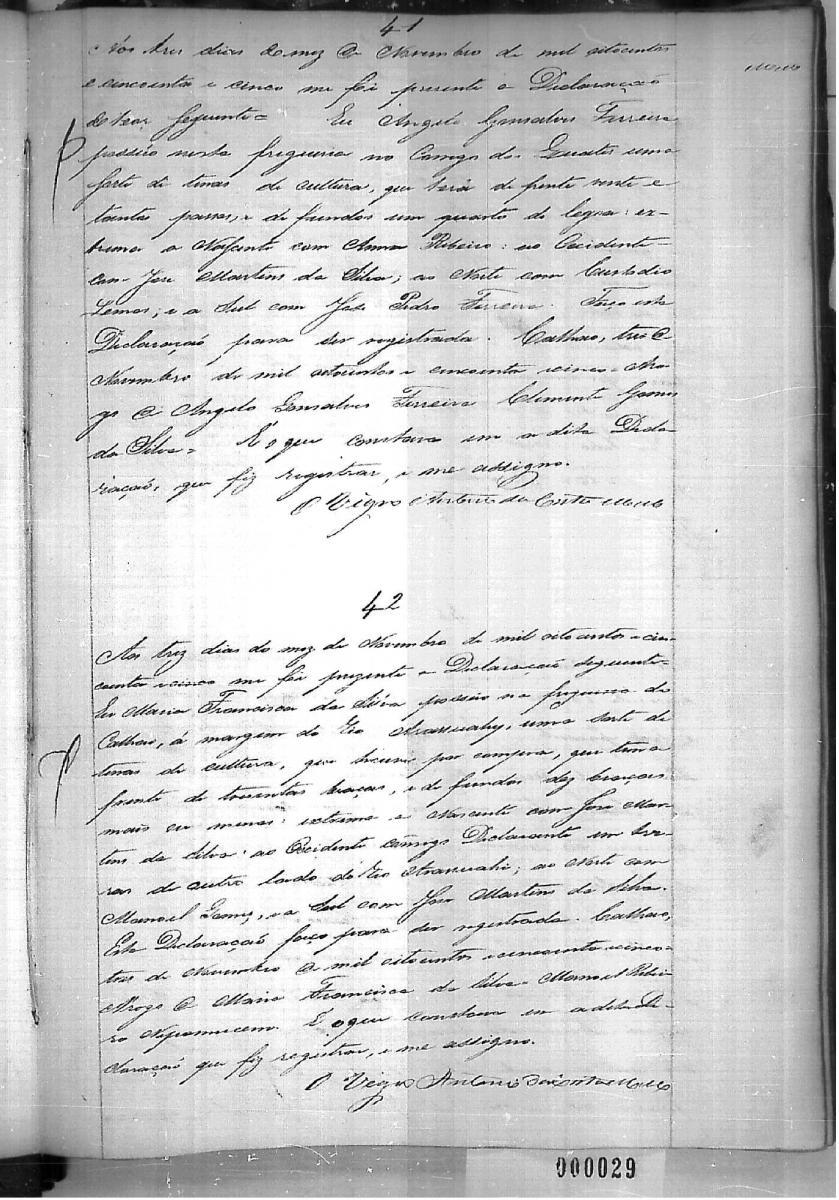 41
Nos tres dias do mez de Novembro de mil oitocentos
e cincoenta e cinco me foi presente a Declaração
do teor seguinte = Eu Angelo Gonsalves Ferreira
possúo nesta freguesia no Corrego dos uma
sorte de terras de cultura, que terá de frente vente e
tantas passas, e de fundos um quarto de legoa: ex-
trema a Nascente com Anna Ribeiro: ao Occidente
com Jose Martins da Silva; ao Norte com Custodio
Lemos; e a Sul com Jose Pedro Ferreira. Faço esta
Declaraçaõ para ser registrada. Calhao, tres de
Novembro de mil oitocentos e cincoenta e cinco - Aro-
go de Angelo Gonsalves Ferreira Clemente Gomes
da Silva = É o que constava em a dita Decla-
raçaõ, que fiz registrar, e me assigno.
O Vigro Antonio da Costa Mello
42
Aos trez dias do mez de Novembro de mil oitocentos e cin-
coenta e cinco me foi prezente a Declaraçaõ seguinte -
Eu Maria Francisca da Silva possúo na freguesia do
Calhao, á margem do Rio Arassuahy, uma sorte de
terras de cultura, que houve por compra, que tem a
frente de trezentas braças, e de fundos dez braças
mais ou menos: extrema a Nascente com Jose Mar-
tins da Silva: ao Occidente comigo Declarante em ter-
ras do outro lado do Rio Arassuahi; ao Norte com
Manoel Gomes, e a Sul com Jose Martins da Silva.
Esta Declaraçaõ faço para ser registrada. Calhao,
tres de Novembro de mil oitocentos e cincoenta e cinco -
Arogo de Maria Francisca da Silva - Manoel Ribei-
ro Nepomuceno. É o que constava em a dita De-
claraçaõ que fiz registrar, e me assigno.
O Vigro Antonio da Costa Mello
000029